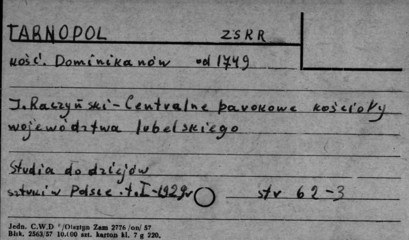 TARNOPOL ZSRR
kość. Dominikanów od 1749
J. Raczyński - Centralne barokowe kościoły
województwa lubelskiego
Studia do dziejów
sztuki w Polsce. t. I - 1929r str 62-3
Jedn. C.W.D /Olsztyn Zam 2776 /on/ 57
Blok. 2563/57 10.000 szt. karton kl. 7 g 220,